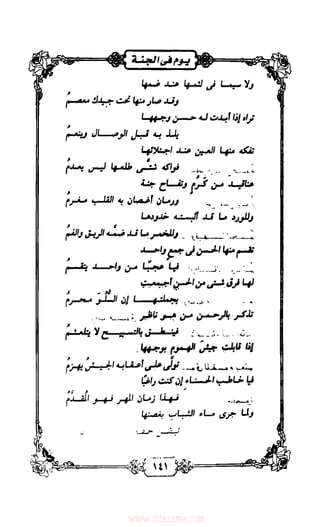 يوم فى الجنة
ولا سيما فى لثمها عند ضمها
وقد صار منها تحت جيدك معصم
تراه إذا أبدت له حسن وجهها
يلذ به قبل الوصال وينعم
تفكه منها العين عند اجتلائها
فواكه شتى طلعها ليس يعدم
عناقيد من كرم وتفاح جنة
ورمان أغصان به القلب مغرم
وللورد ما قد ألبسته خدودها
وللخمر ما قد ضمه الريق والفم
تقسم منها الحسن فى جمع واحد
فيا عجبا من واحد يتقسم
لها فرق شتى من الحسن أجمعت
بجملتها إن السلو محرم
تذكر بالرحمن من هو ناظر
فينطق بالتسبيح لا يتلعثم
إذا قابلت جيش الهموم بوجهها
تولى على أعقابه الجيش يهزم
فيا خاطب الحسناء إن كنت راغبا
فهذا زمان المهر فهو المقدم
ولما جرى ماء الشباب بغصنها
١٤١
www.ibtesama.com